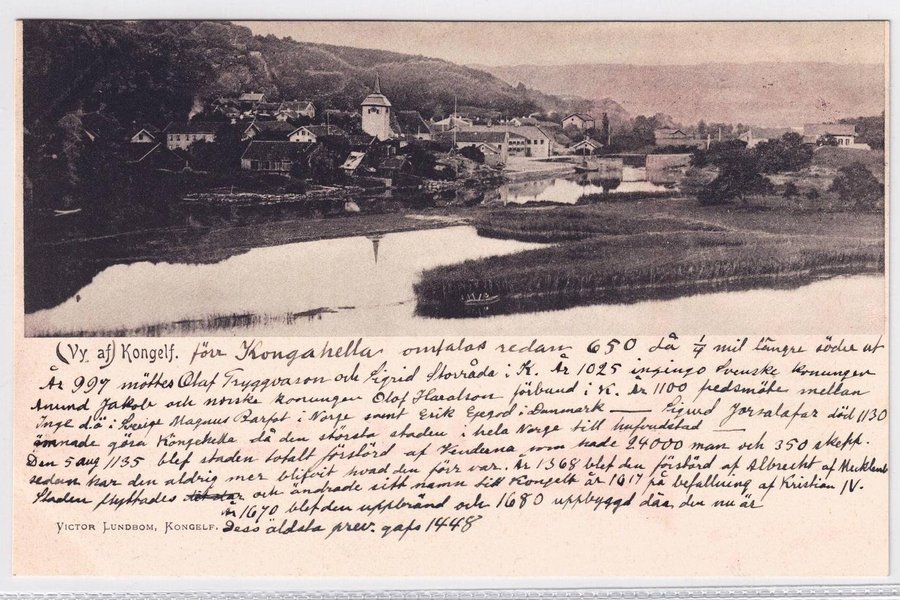 (Vy af) Kongelf. förr Kongahella omtalas redan 650 då ¼ mil längre söder ut
År 997 möttes Olaf Tryggvason och Sigrid Storråda i K. År 1025 ingingo Svenske konungen
Anund Jakob och norske konungen Olof Haralson förbund i K. År 1100 fredsmöte mellan
Inge d.ä i Sverige Magnus Barfot i Norge samt Erik Egod i Danmark — Sigurd Jorsalafar död 1130
ämnade göra Kongahella då den största staden i hela Norge till hufvudstad
Den 5 aug 1135 blef staden totalt förstörd af Venderna som hade 24000 man och 350 skepp.
sedan har den aldrig mer blifvit hvad den förr var. År 1368 blef den förstörd af Albrecht af Mecklenb
Staden flyttades och ändrade sitt namn till Kongelf år 1617 på befallning af Kristian IV.
År 1670 blef den uppbränd och 1680 uppbyggd där den nu är
Dess äldsta priv. gafs 1448
VICTOR LUNDBOM, KONGELF.